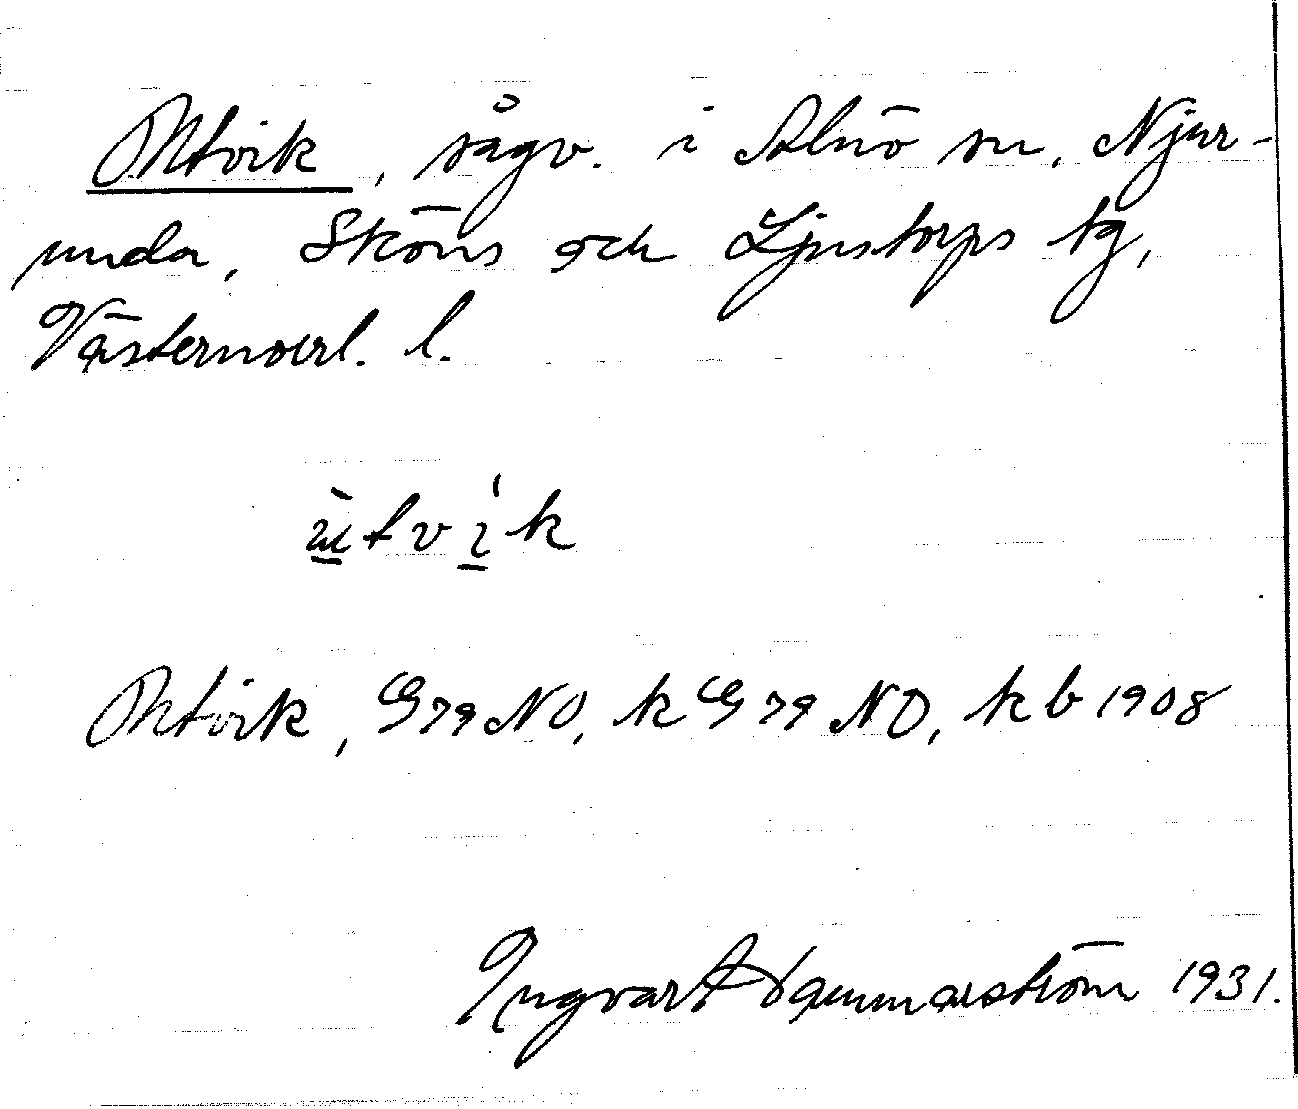 Utvik, sågv. i Alnö sn, Njur-
unda, Sköns och Ljustorps tg,
Västernorrl. l.
ùtvík
Utvik, G79NO, kG79NO, kb 1908
Ingvart Hammarström 1931.